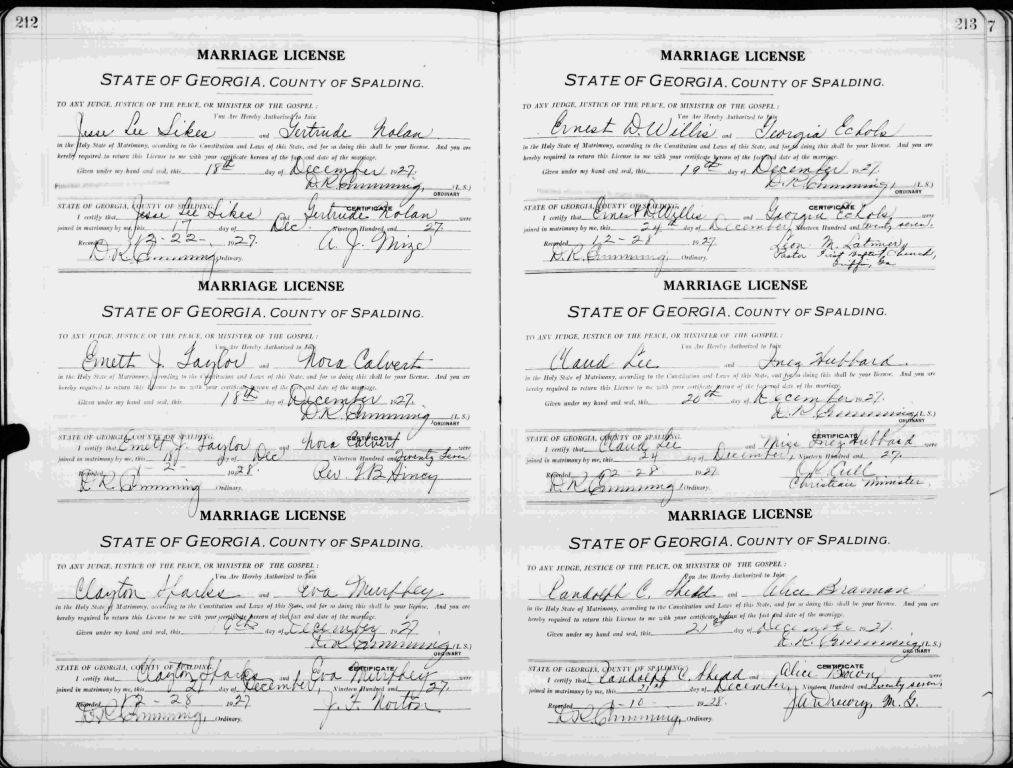 212
MARRIAGE LICENSE
STATE OF GEORGIA, COUNTY OF SPALDING.
TO ANY JUDGE, JUSTICE OF THE PEACE, OR MINISTER OF THE GOSPEL:
You Are Hereby Authorized to Join
Jesse Lee Sikes and Gertrude Nolan
in the Holy State of Matrimony, according to the Constitution and Laws of this State, and for so doing this shall be your license. And you are
hereby required to return this License to me with your certificate hereon of the fact and date of the marriage.
Given under my hand and seal, this 18th day of December 1927.
D.R. Cumming, (L.S.)
ORDINARY
CERTIFICATE
STATE OF GEORGIA, COUNTY OF SPALDING.
I certify that Jesse Lee Sikes and Gertrude Nolan were
joined in matrimony by me, this 17 day of Dec. Nineteen Hundred and 27.
Recorded 12-22-, 1927. A. J. Mize
D.R. Cumming, Ordinary.
MARRIAGE LICENSE
STATE OF GEORGIA, COUNTY OF SPALDING.
TO ANY JUDGE, JUSTICE OF THE PEACE, OR MINISTER OF THE GOSPEL:
You Are Hereby Authorized to Join
Emett J. Taylor and Nora Calvert
in the Holy State of Matrimony, according to the Constitution and Laws of this State, and for so doing this shall be your license. And you are
hereby required to return this License to me with your certificate hereon of the fact and date of the marriage.
Given under my hand and seal, this 18th day of December 1927.
D.R. Cumming (L.S.)
ORDINARY
CERTIFICATE
STATE OF GEORGIA, COUNTY OF SPALDING.
I certify that Emett J. Taylor and Nora Calvert were
joined in matrimony by me, this 18 day of Dec Nineteen Hundred and Twenty Seven
Recorded 1-2- 1928. Rev.
D.R. Cumming Ordinary.
MARRIAGE LICENSE
STATE OF GEORGIA, COUNTY OF SPALDING.
TO ANY JUDGE, JUSTICE OF THE PEACE, OR MINISTER OF THE GOSPEL:
You Are Hereby Authorized to Join
Clayton Sparks and Eva Murphey
in the Holy State of Matrimony, according to the Constitution and Laws of this State, and for so doing this shall be your license. And you are
hereby required to return this License to me with your certificate hereon of the fact and date of the marriage.
Given under my hand and seal, this day of December 1927.
D.R. Cumming (L.S.)
ORDINARY
CERTIFICATE
STATE OF GEORGIA, COUNTY OF SPALDING.
I certify that Clayton Sparks and Eva Murphey were
joined in matrimony by me, this 21 day of December, Nineteen Hundred and 27.
Recorded 12-28 1927 J. F. Norton
D.R. Cumming, Ordinary.
213
7
MARRIAGE LICENSE
STATE OF GEORGIA, COUNTY OF SPALDING.
TO ANY JUDGE, JUSTICE OF THE PEACE, OR MINISTER OF THE GOSPEL:
You Are Hereby Authorized to Join
Ernest D. Willis and Georgia Echols
in the Holy State of Matrimony, according to the Constitution and Laws of this State, and for so doing this shall be your license. And you are
hereby required to return this License to me with your certificate hereon of the fact and date of the marriage.
Given under my hand and seal, this 19th day of December 1927.
D.R. Cumming, (L.S.)
ORDINARY
CERTIFICATE
STATE OF GEORGIA, COUNTY OF SPALDING.
I certify that Ernest D. Willis and Georgia Echols were
joined in matrimony by me, this 24th day of December, Nineteen Hundred and twenty seven.
Recorded 12-28 1927. Leon M. Latimer,
D.R. Cumming, Ordinary. Pastor First Baptist Church,
Griffin, Ga
MARRIAGE LICENSE
STATE OF GEORGIA, COUNTY OF SPALDING.
TO ANY JUDGE, JUSTICE OF THE PEACE, OR MINISTER OF THE GOSPEL:
You Are Hereby Authorized to Join
Claud Lee and Inez Hubbard
in the Holy State of Matrimony, according to the Constitution and Laws of this State, and for so doing this shall be your license. And you are
hereby required to return this License to me with your certificate hereon of the fact and date of the marriage.
Given under my hand and seal, this 20th day of December 1927.
D.R. Cumming (L.S.)
ORDINARY
CERTIFICATE
STATE OF GEORGIA, COUNTY OF SPALDING.
I certify that Claud Lee and Miss Inez Hubbard were
joined in matrimony by me, this 24 day of December, Nineteen Hundred and 27.
Recorded 12-28 1927
D.R. Cumming, Ordinary. Christian Minister.
MARRIAGE LICENSE
STATE OF GEORGIA, COUNTY OF SPALDING.
TO ANY JUDGE, JUSTICE OF THE PEACE, OR MINISTER OF THE GOSPEL:
You Are Hereby Authorized to Join
Randolph C. Shedd and Alice Brannan
in the Holy State of Matrimony, according to the Constitution and Laws of this State, and for so doing this shall be your license. And you are
hereby required to return this License to me with your certificate hereon of the fact and date of the marriage.
Given under my hand and seal, this 21st day of December 1927.
D.R. Cumming (L.S.)
ORDINARY
CERTIFICATE
STATE OF GEORGIA, COUNTY OF SPALDING.
I certify that Randolph C. Shedd and Alice were
joined in matrimony by me, this 21st day of December, Nineteen Hundred and twenty seven.
Recorded 1-10- 1928. M. G.
D.R. Cumming, Ordinary.